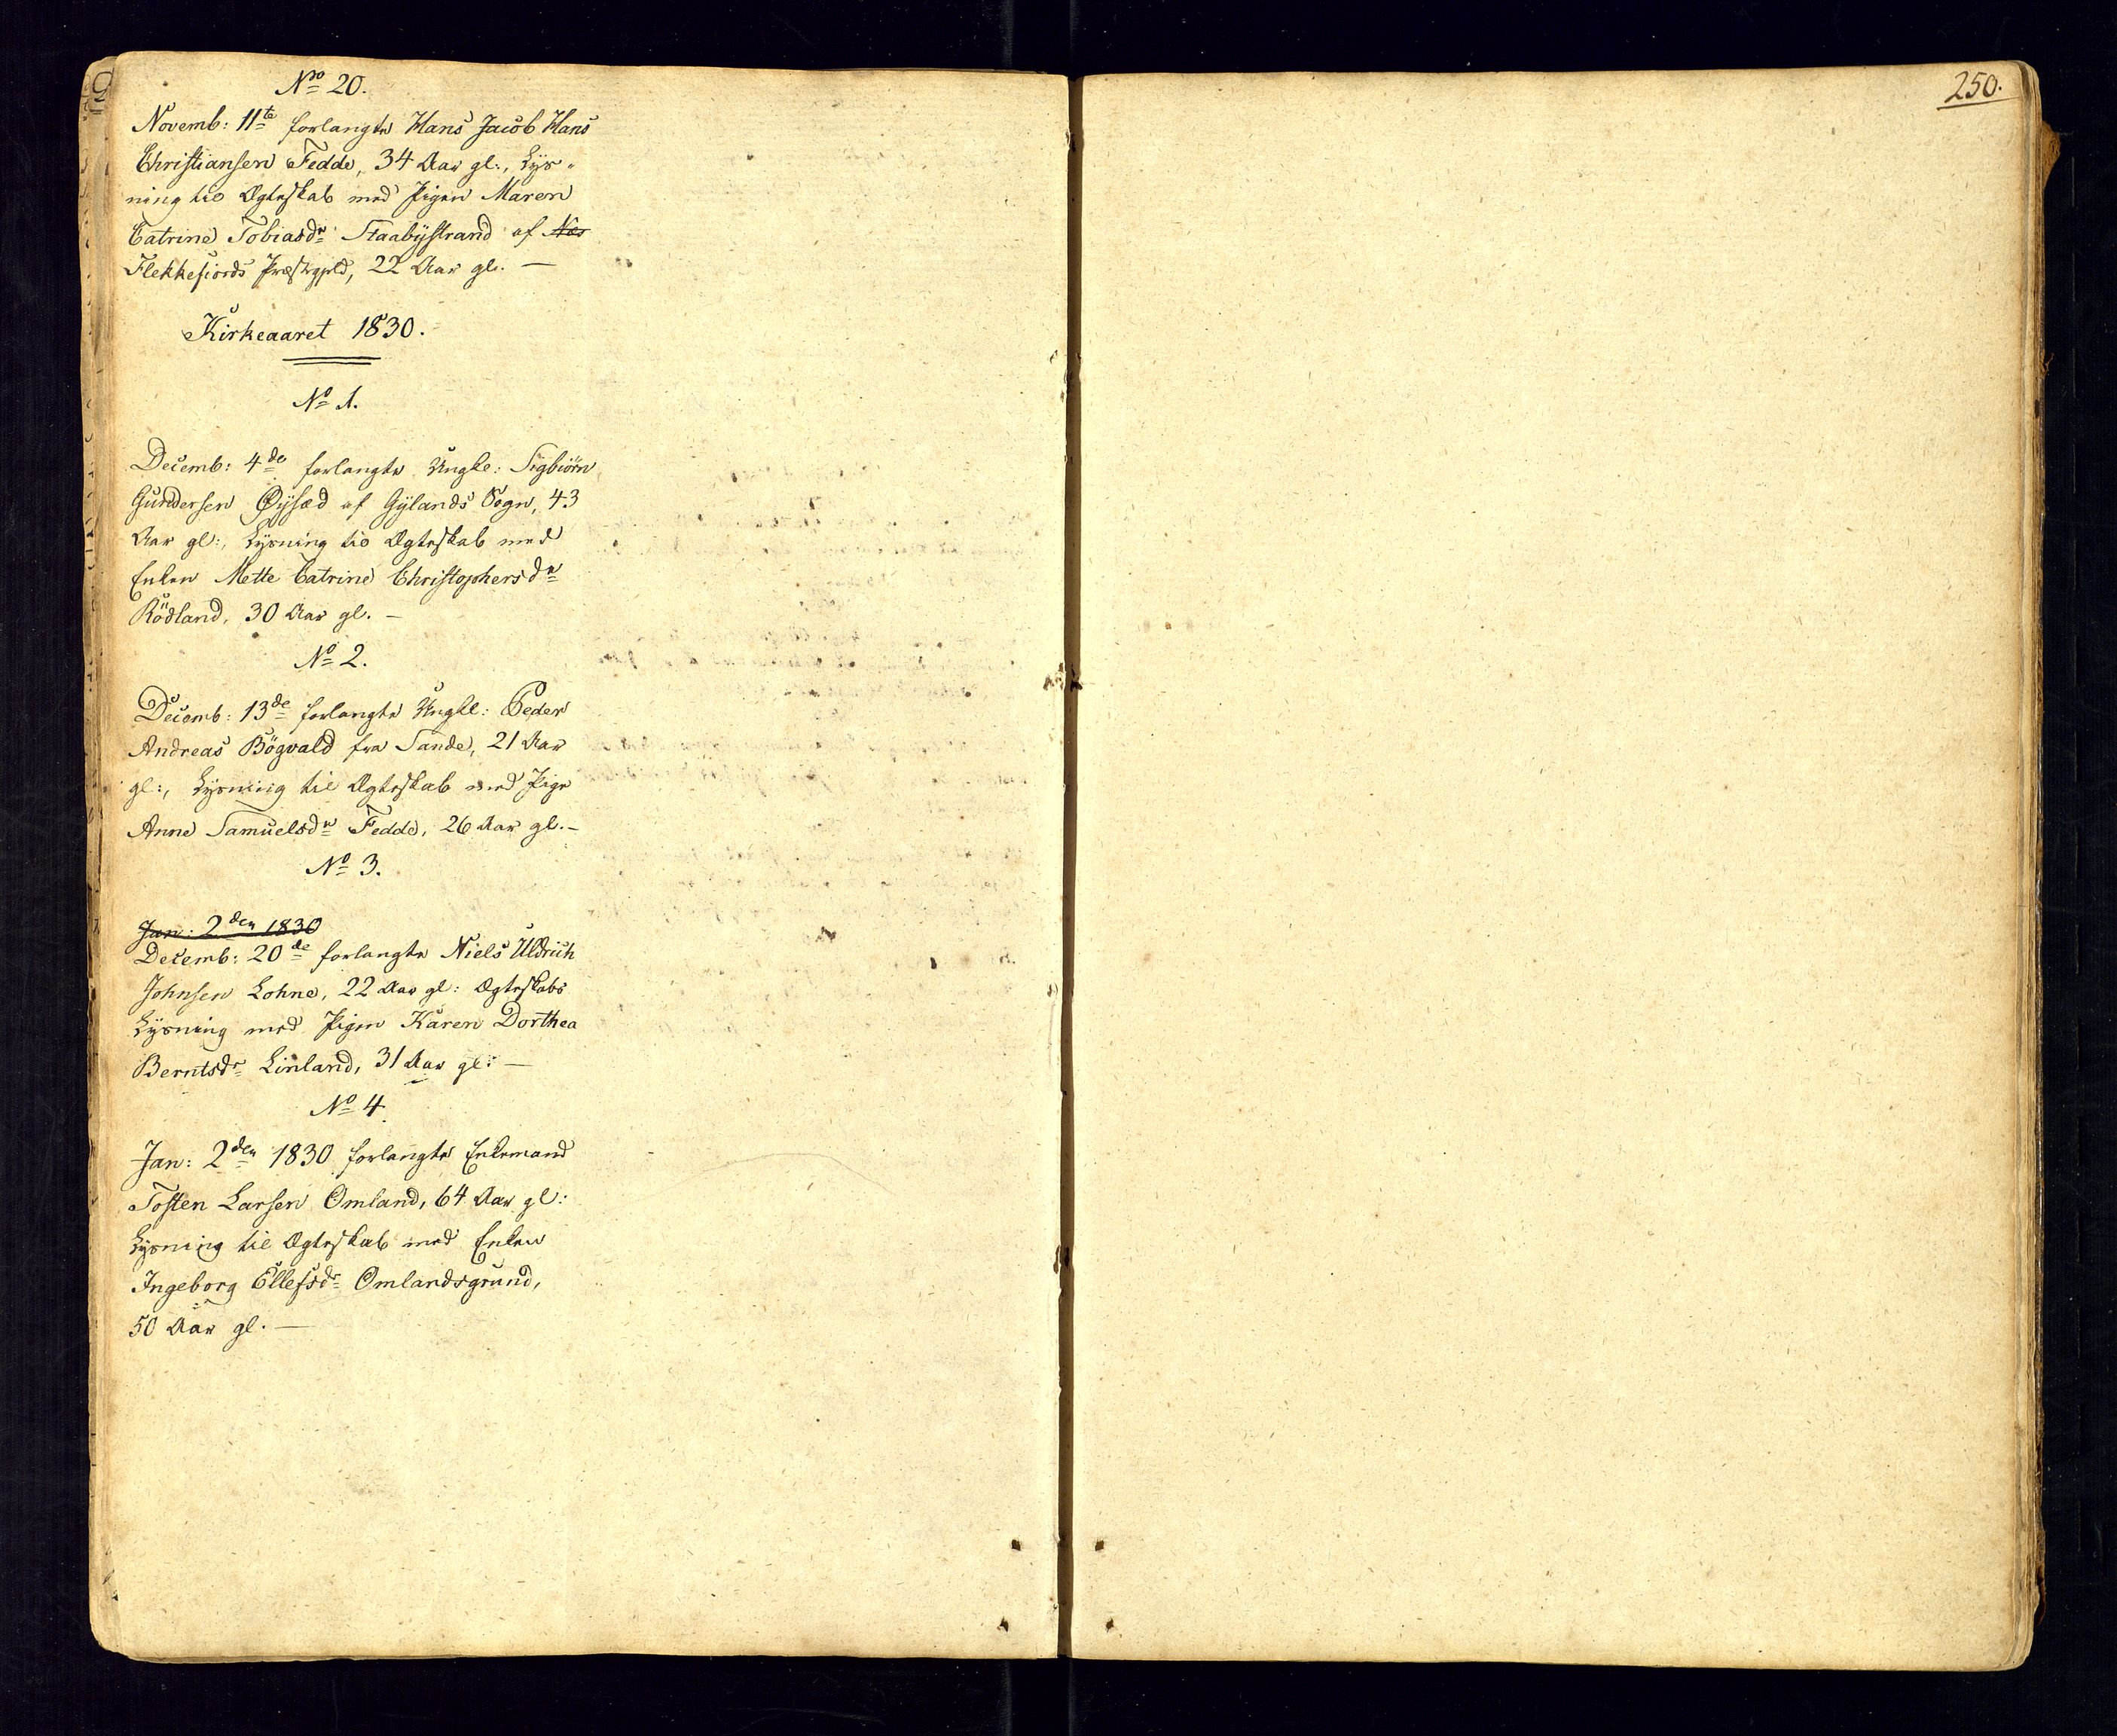 No 20.
Novemb: 11te forlangte Hans Jacob Hans
Christiansen Fedde, 34 Aar gl:, Lys-
ning til Ægteskab med Pigen Maren
Catrine Tobiasdr Staabÿstrand af Næs
Flekkefiords Præstegjeld, 22 Aar gl. —
Kirkeaaret 1830.
No 1.
Decemb: 4de forlangte Ungke: Sigbiörn
Gundersen Øÿsæd af Gÿlands Sogn, 43
Aar gl:, Lysning til Ægteskab med
Enken Mette Catrine Christophersdr
Rödland, 30 Aar gl. —
No 2.
Decemb: 13de forlangte Ungkl: Peder
Andreas Bögvald fra Sande, 21 Aar
gl:, Lysning til Ægteskab med Pige
Anne Samuelsdr Fedde, 26 Aar gl. —
No 3.
Jan: 2den 1830
Decemb: 20de forlangte Niels Uldrich
Johnsen Lohne, 22 Aar gl: Ægteskabs
Lysning med Pigen Karen Dorthea
Berntsdr Linland, 31 Aar gl: —
No 4.
Jan: 2den 1830 forlangte Enkemand
Tosten Larsen Omland, 64 Aar gl:
Lysning til Ægteskab med Enken
Ingeborg Ellefsdr Omlandsgrund,
50 Aar gl. —
250.